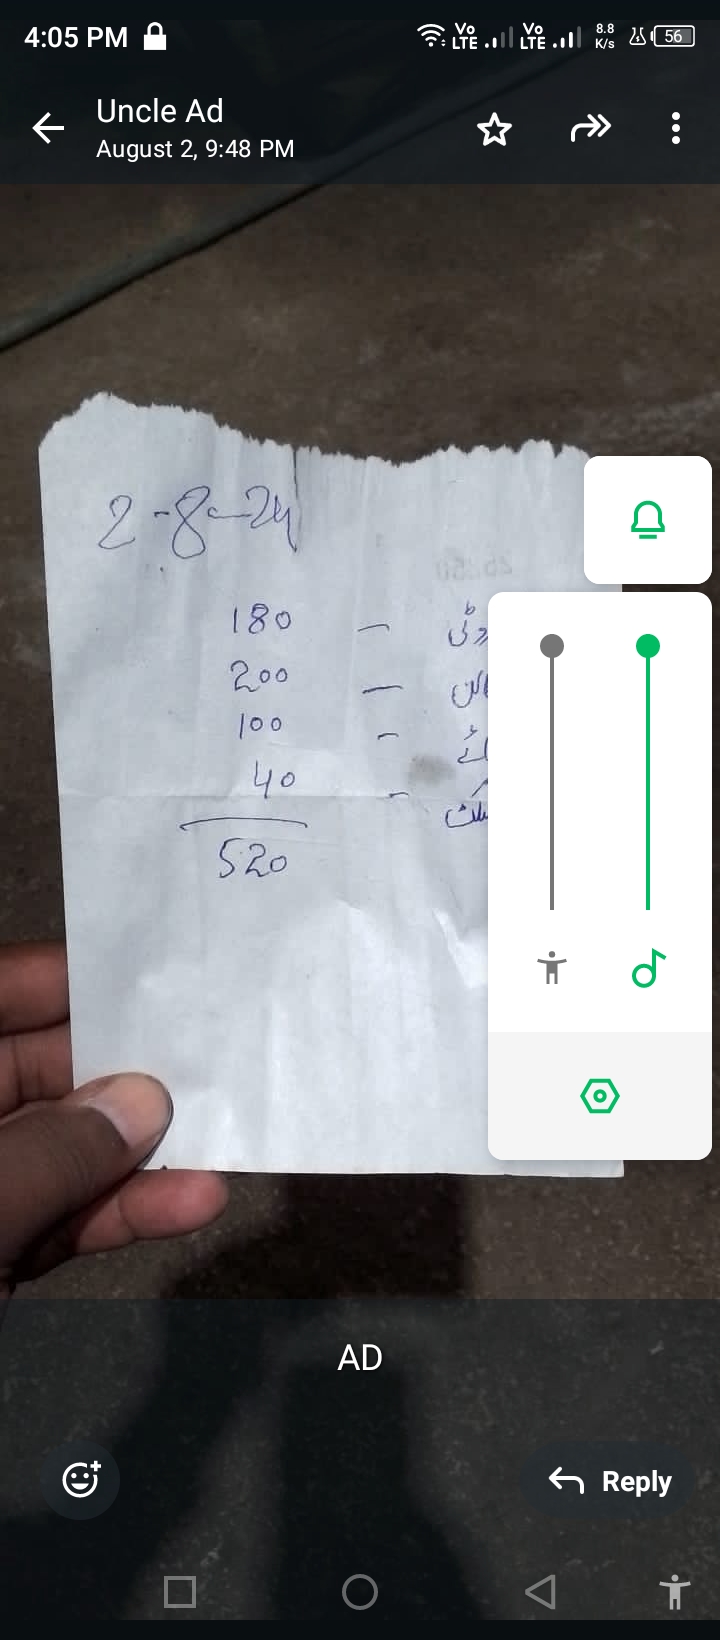 4:05 PM Vo LTE Vo LTE 8.8 K/s 56
Uncle Ad
August 2, 9:48 PM
2-8-24
180 —
200 —
100 —
40 —
520
AD
Reply